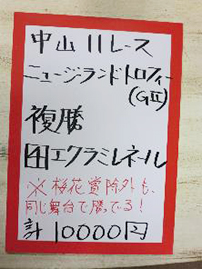 中山11レース
ニュージーランドトロフィー
(GⅡ)
複勝
④エクラミレネール
※桜花賞除外も、
同じ舞台で勝ってる!
計10000円